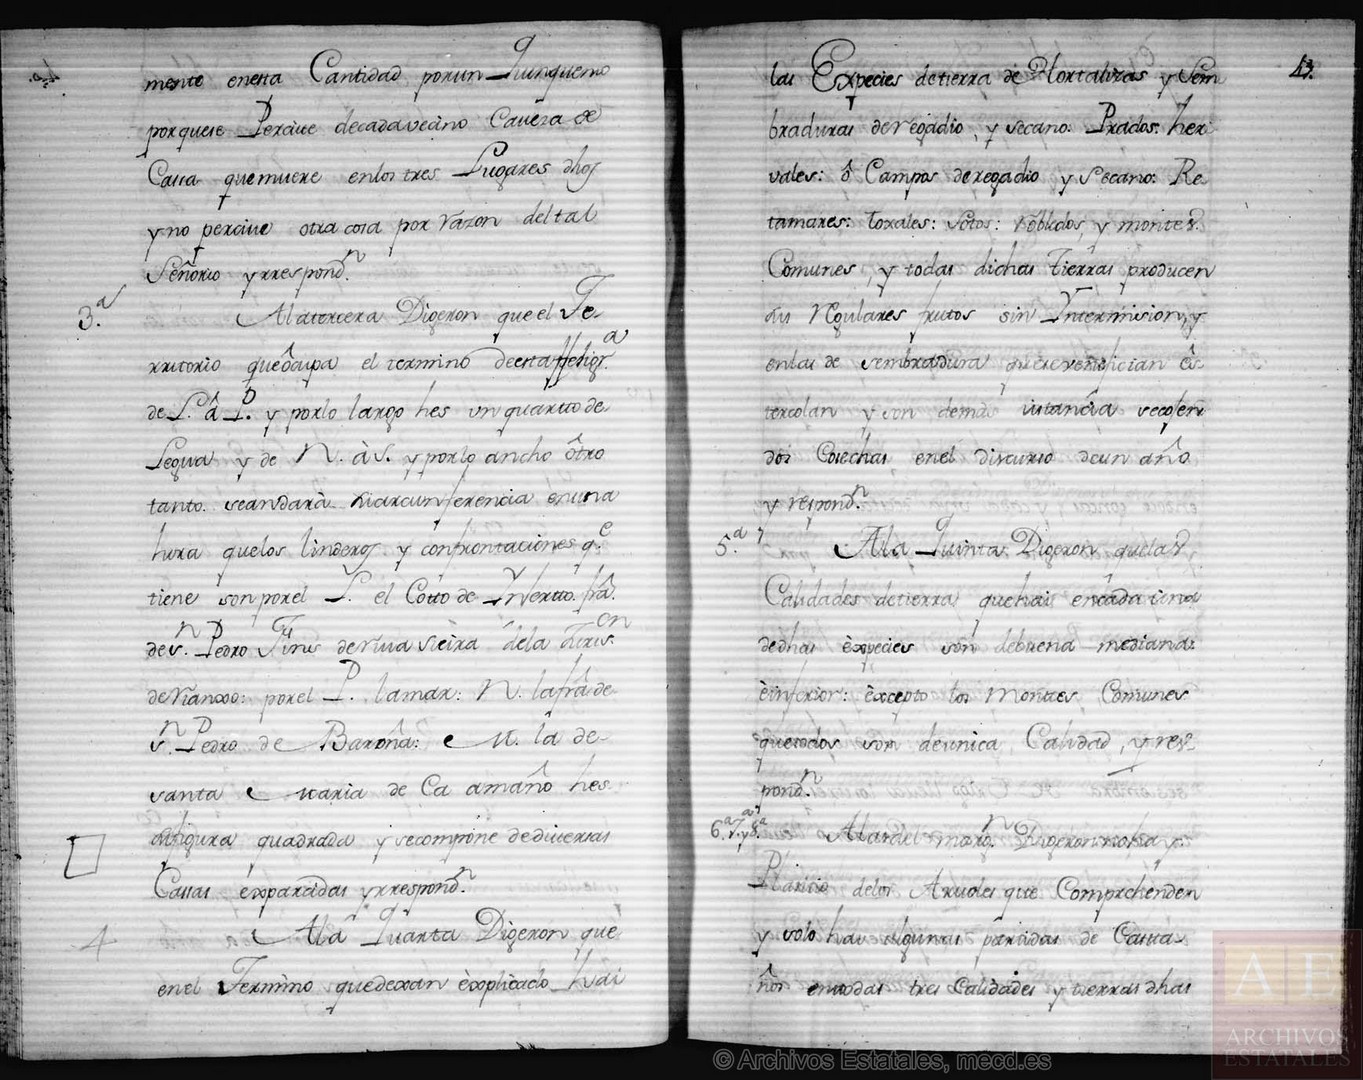 mente enesta Cantidad por un Quinquenio
porquese Percive decada vecino Caveza de
Cassa que muere enlos tres Lugares dhos
y no percive otra cosa por razon del tal
Señorio y rrespond.n
3.a Ala tercera Digeron que el Te-
rritorio que ôcupa el termino de esta felig.a
de L. â P. y porlo largo hes un quarto de
Legua y de N. à S. y porlo ancho ôtro
tanto. seandarà su circunferencia en una
hura quelos linderos y confrontaciones q.e
tiene son por el L. el Cotto de Ynsertto. frâ.
de S.n Pedro Fins de riva sieira de la Juris.on
de Rianxo: por el P. la mar: N. la frâ de
S.n Pedro de Baroña: M. lâ de
santa Maria de Ca amaño hes
su figura quadrada y se compône de diversas
Cassas exparcidas y rrespond.n
4 Ala Quarta Digeron que
en el Termino que dexan êxplicado hai
13.
las Expecies de tierra de Hortalizas y Sem
braduras de regadio, y secano: Prados: her
vales: ô Campos de regadio y Secano: Re
tamares: toxales: sotos: robledos y montes.
Comunes, y todas dichas Tierras producen
sus Regulares frutos sin Yntermision, y
en las de sembradura que se venefician es
tercolan y son demâs sustancia se cojen
dos Cosechas en el discurso de un año
y respond.n
5.a Ala Quinta Digeron que las
Calidades de tierra que hai en cada una
de dhas êxpecies son de buena mediana:
êinferior: êxcepto los Montes Comunes
que todos son de unica Calidad, y res-
pond.n
6.a 7.a y 8.a Digeron no hay
Plantio delos Arvoles que Comprehenden
y solo hay algunas pârtidas de Casta-
ños en todas tres Calidades y tierras dhas
© Archivos Estatales, mecd.es
AE
ARCHIVOS
ESTATALES